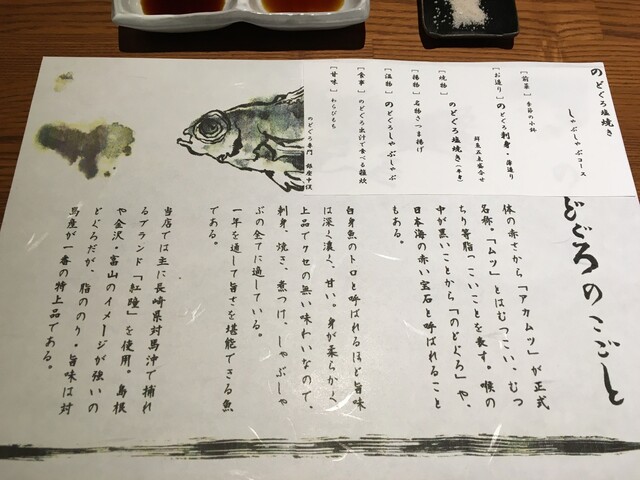 のどぐろ塩焼き
しゃぶしゃぶコース
［前菜］季節の小鉢
［お造り］のどぐろ刺身・薄造り
鮮魚五点盛合せ
［焼物］のどぐろ塩焼き（半身）
［揚物］名物さつま揚げ
［温物］のどぐろしゃぶしゃぶ
［食事］のどぐろ出汁で食べる雑炊
［甘味］わらびもち
のどぐろ専門 銀座中俣
どぐろのこごと
体の赤さから「アカムツ」が正式
名称。「ムツ」とはむつこい、むつ
ちり等脂っこいことを表す。喉の
中が黒いことから「のどぐろ」や、
日本海の赤い宝石と呼ばれること
もある。
白身魚のトロと呼ばれるほど旨味
は深く濃く、甘い。身が柔らかく
上品でクセの無い味わいなので、
刺身、焼き、煮つけ、しゃぶしゃ
ぶの全てに適している。
一年を通して旨さを堪能できる魚
である。
当店では主に長崎県対馬沖で捕れ
るブランド「紅瞳」を使用。島根
や金沢・富山のイメージが強いの
どぐろだが、脂ののり・旨味は対
馬産が一番の特上品である。